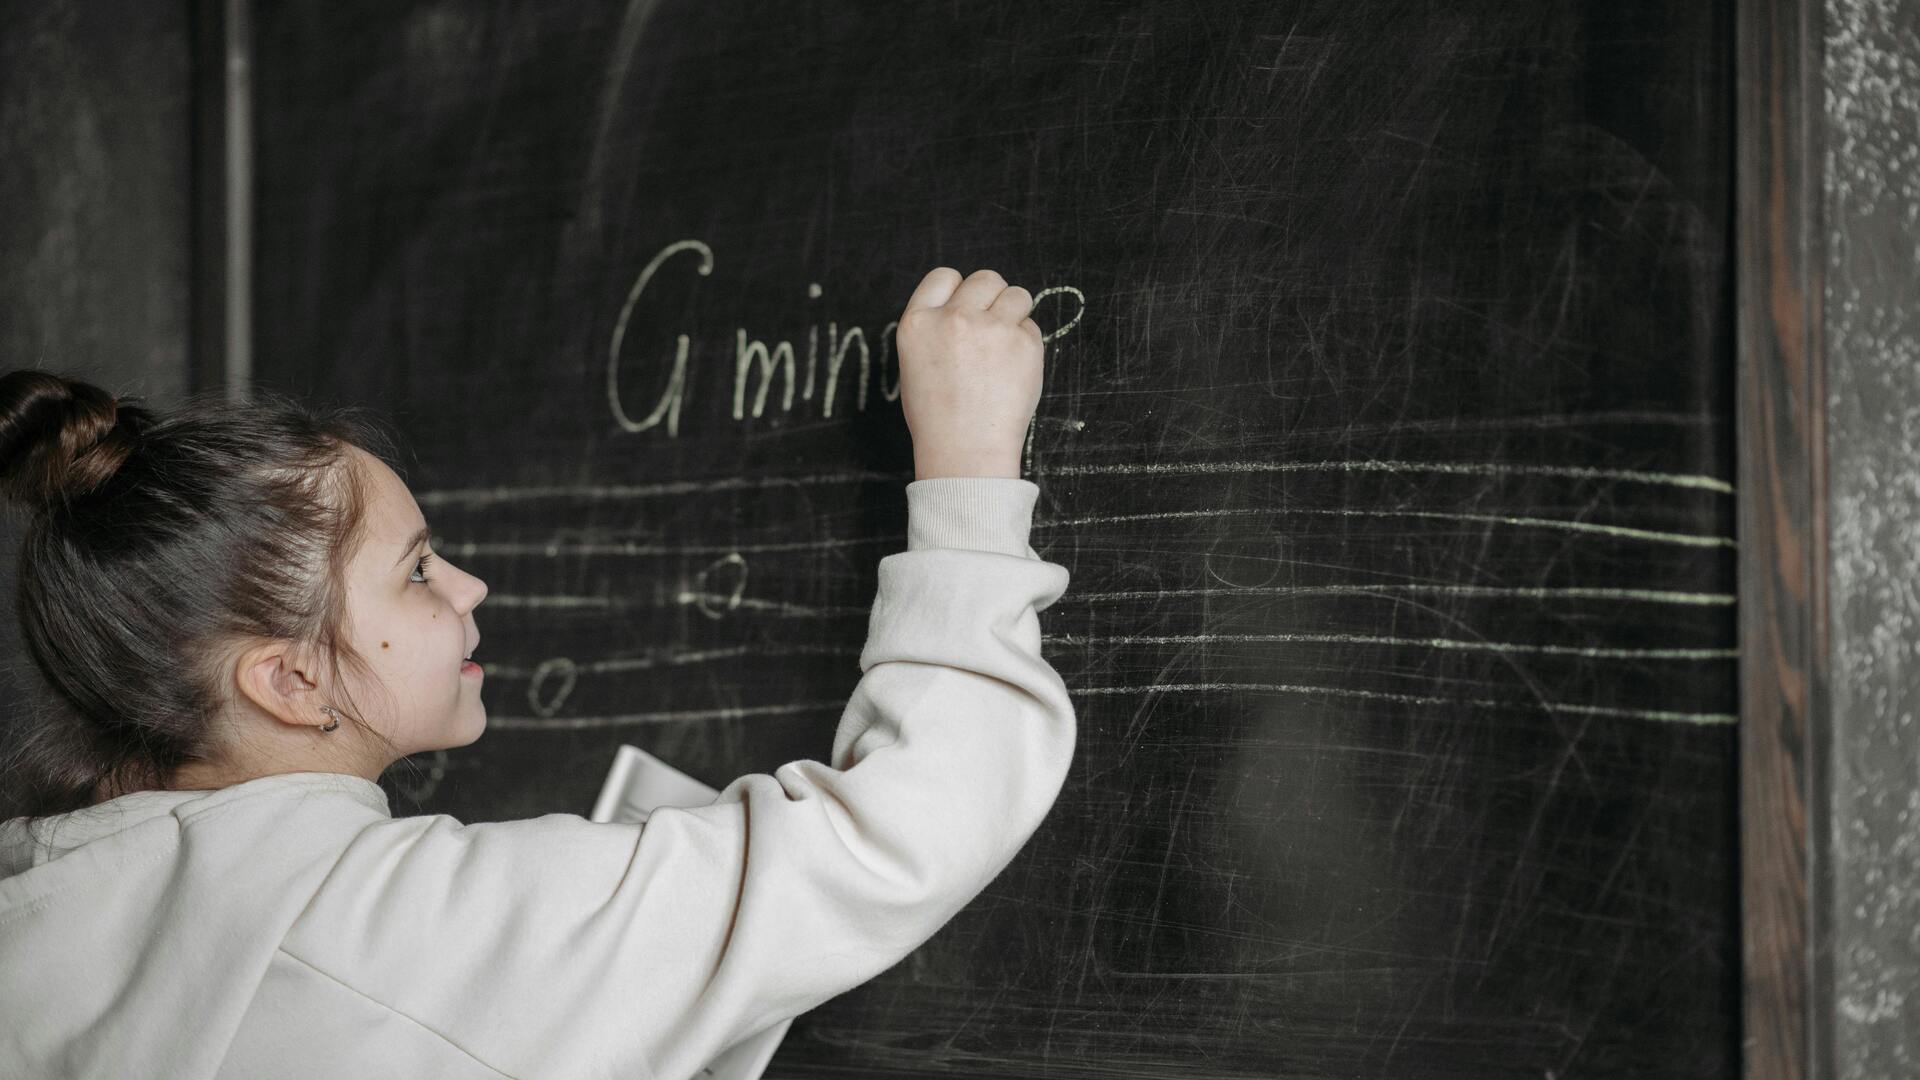 G mino